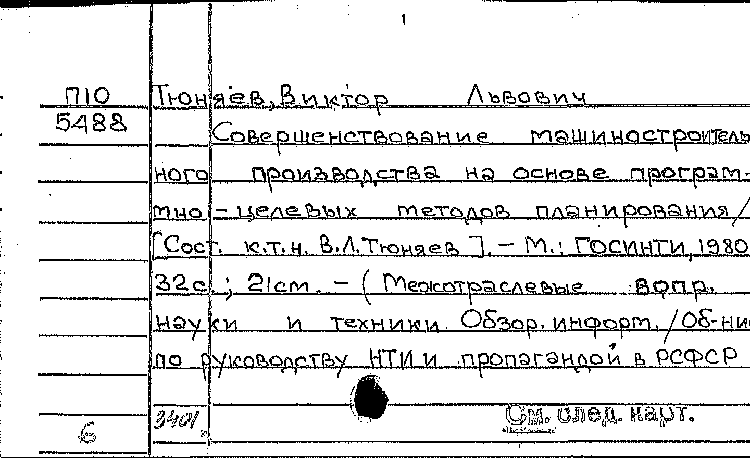 1
П10 Тюняев, Виктор Львович
5488 Совершенствование машиностроитель
ного производства на основе програм-
мно-целевых методов планирования/
[Сост. к.т.н. В.Л.Тюняев]. – М.: ГОСИНТИ, 1980
32с.; 21см. – (Межотраслевые вопр.
науки и техники. Обзор. информ./Об-ни
по руководству НТИ и пропагандой в РСФСР
6 3401. См. след. карт.